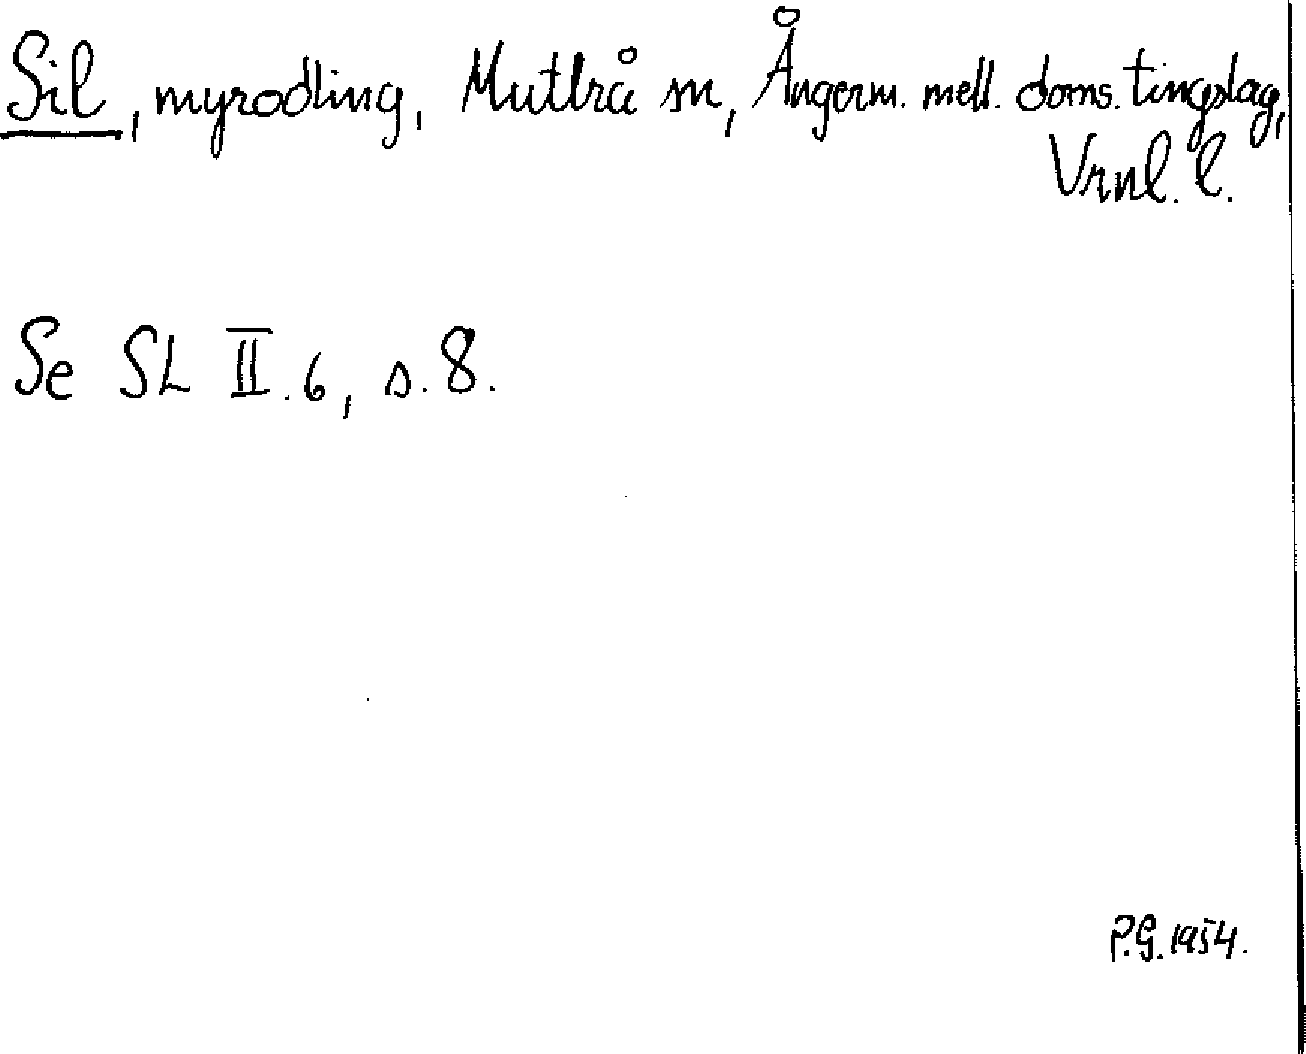 Sil, myrodling, Mutlrå sn, Ångerm. mell. doms. tingslag,
Vrnl. l.
Se SL II.6, s.8.
P.G. 1954.